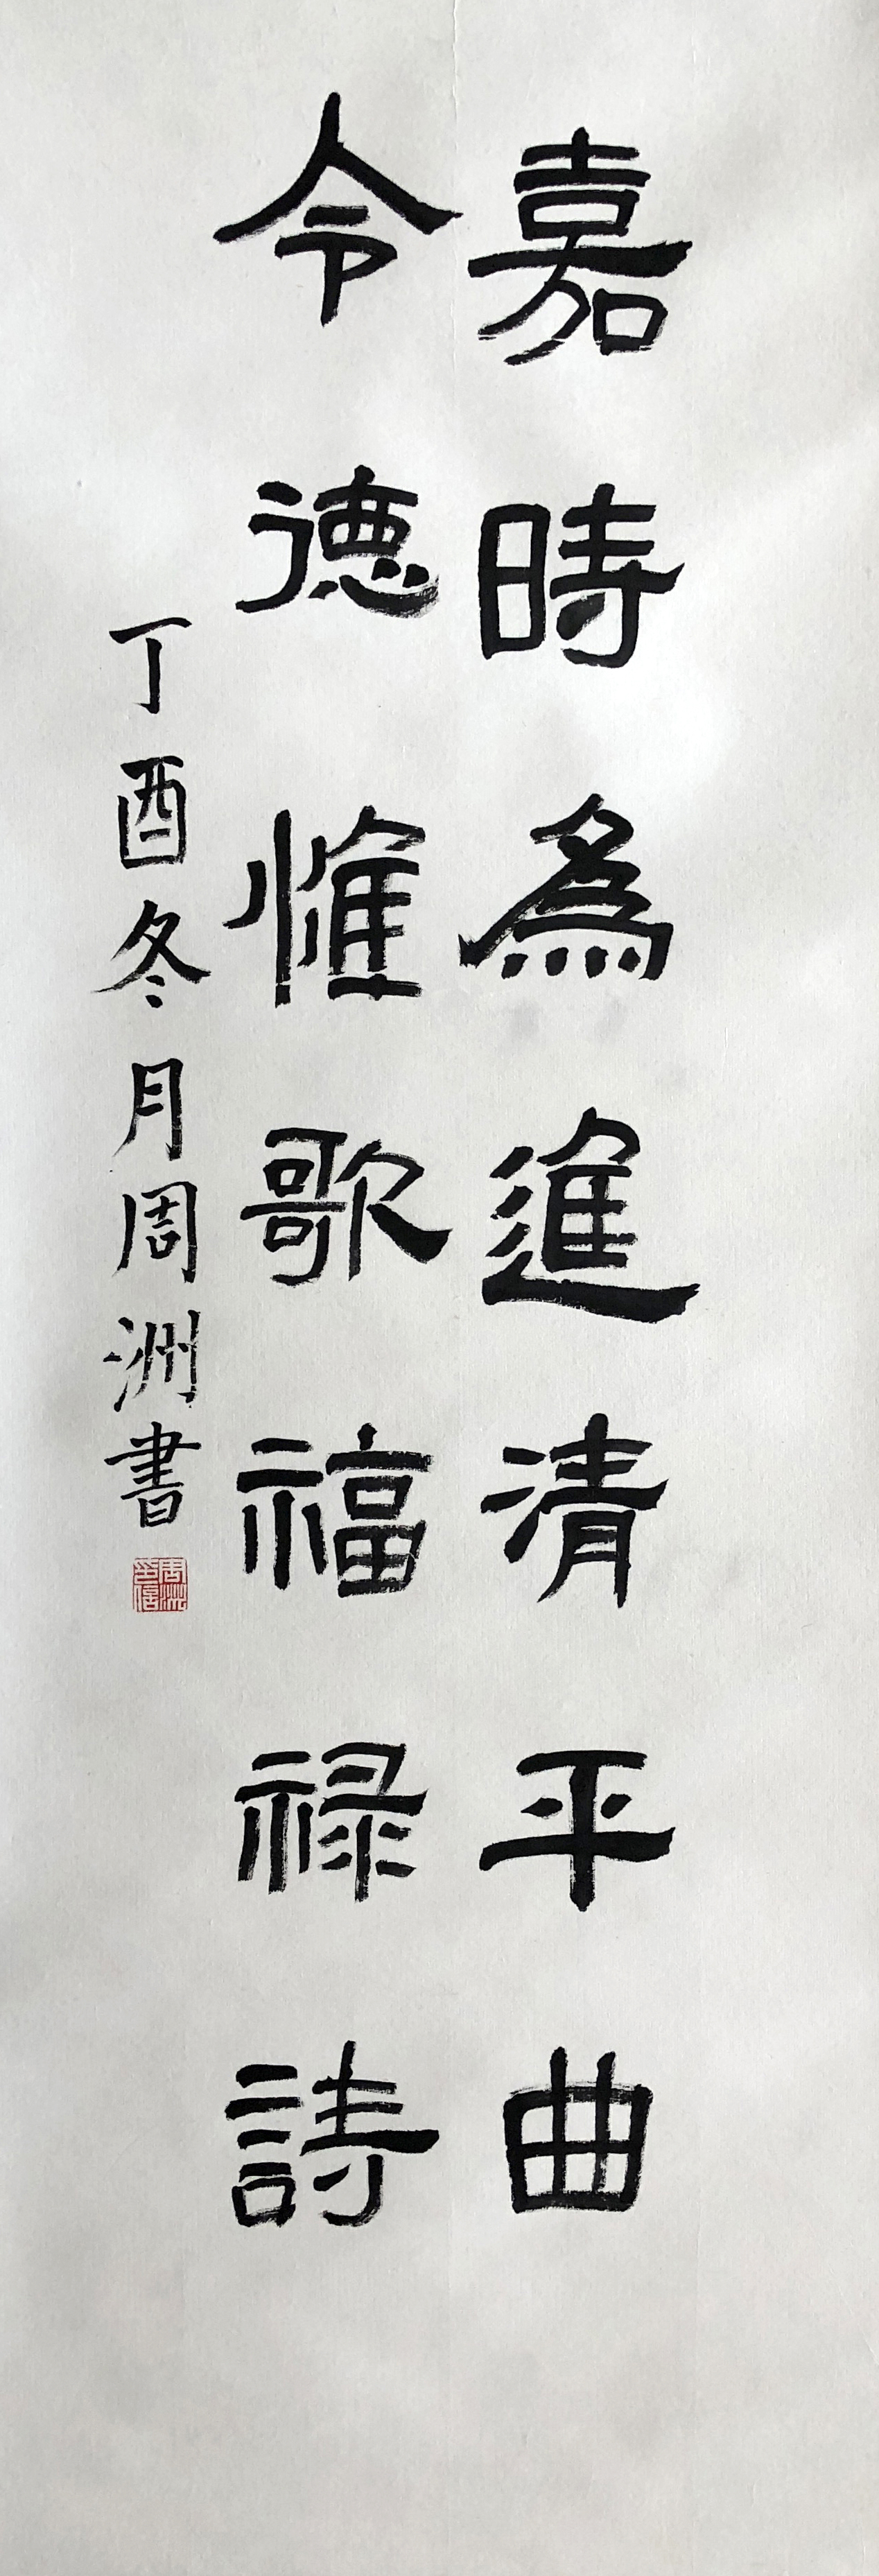 嘉時為進清平曲
令德惟歌福禄詩
丁酉冬月周洲書
周洲印信